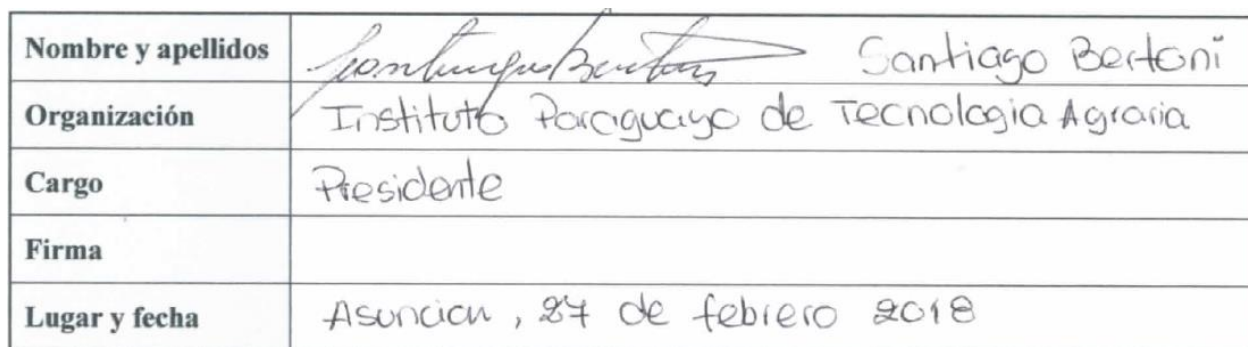 Nombre y apellidos Santiago Bertoni
Organización Instituto Paraguayo de Tecnologia Agraria
Cargo Presidente
Firma
Lugar y fecha Asuncion, 27 de febrero 2018